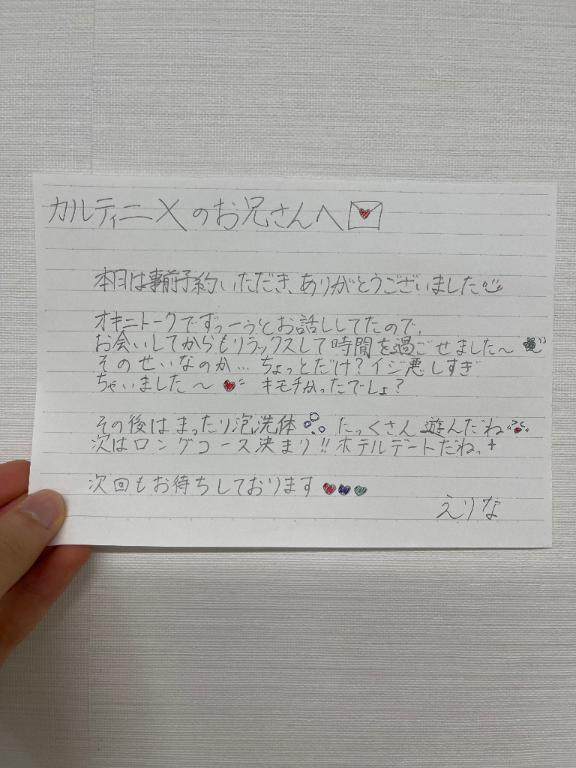 カルティニXのお兄さんへ
本日は事前予約いただき、ありがとうございました
オキニトークでずっーうとお話ししてたので、
お会いしてからもリラックスして時間を過ごせました〜
そのせいなのか…ちょっとだけ?イジ悪しすぎ
ちゃいました〜 キモチかったでしょ?
その後はまったり泡洗体 たっくさん遊んだね
次はロングコース決まり!!ホテルデートだね、
次回もお待ちしております
えりな